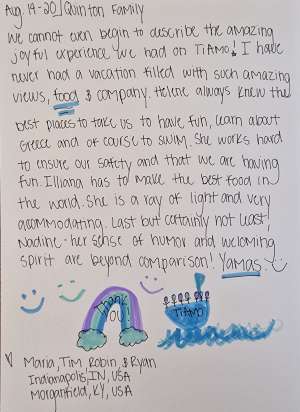 Aug. 14-20 | Quinton Family
We cannot even begin to describe the amazing
joyful experience we had on TIAMO! I have
never had a vacation filled with such amazing
views, food & company. Helene always knew the
best places to take us to have fun, learn about
Greece and of course to swim. She works hard
to ensure our safety and that we are having
fun. Illiana has to make the best food in
the world. She is a ray of light and very
accommodating. Last but certainly not least,
Nadine - her sense of humor and welcoming
spirit are beyond comparison! Yamas.
Thank
you
TIAMO
Maria, Tim, Robin, & Ryan
Indianapolis, IN, USA
Morganfield, KY, USA